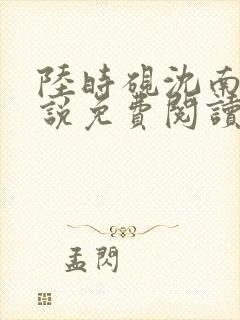 陸時硯沈南
說免費閱讀
孟閃